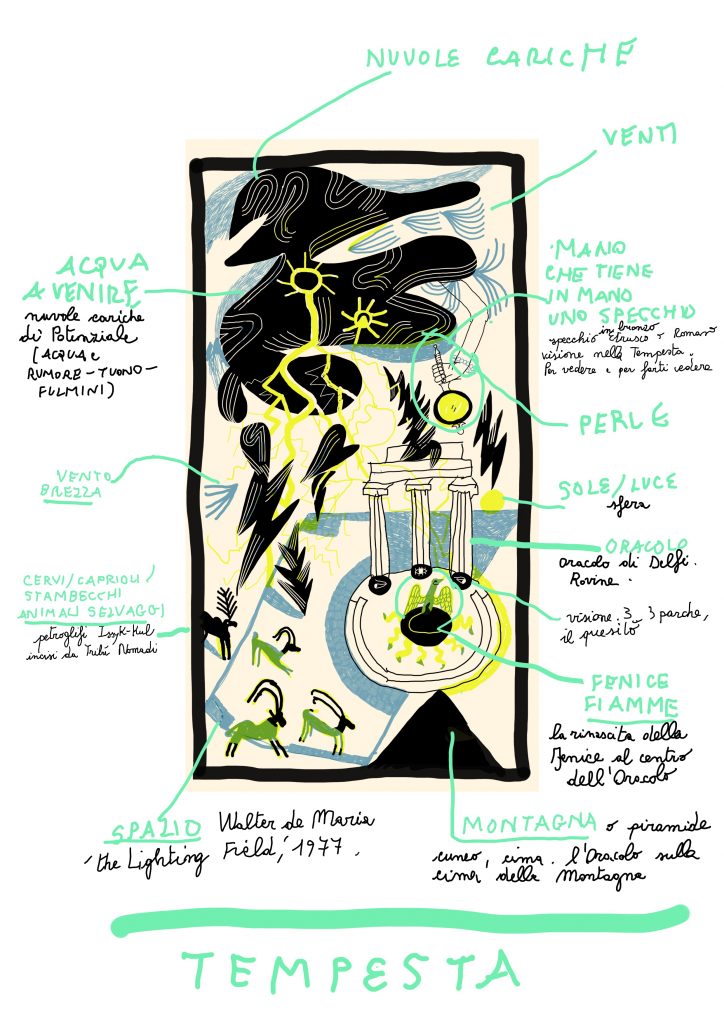 NUVOLE CARICHE
VENTI
ACQUA
A VENIRE
nuvole cariche
di Potenziale
(ACQUA e
RUMORE-TUONO-
FULMINI)
·MANO
CHE TIENE
IN MANO
UNO SPECCHIO
in bronzo
specchio etrusco o Romano
visione nella Tempesta.
Per vedere e per farti vedere
PERLE
VENTO
BREZZA
SOLE/LUCE
sfera
ORACOLO
oracolo di Delfi.
Rovine.
CERVI/CAPRIOLI/
STAMBECCHI
ANIMALI SELVAGGI
petroglifi Issyk-Kul
incisi da Tribù Nomadi
visione. 3, 3 parche,
il quesito
FENICE
FIAMME
la rinascita della
Fenice al centro
dell'Oracolo
SPAZIO Walter de Maria
'the Lighting Field,' 1977.
MONTAGNA o piramide
cuneo, cima. l'Oracolo sulla
cima della Montagna
TEMPESTA